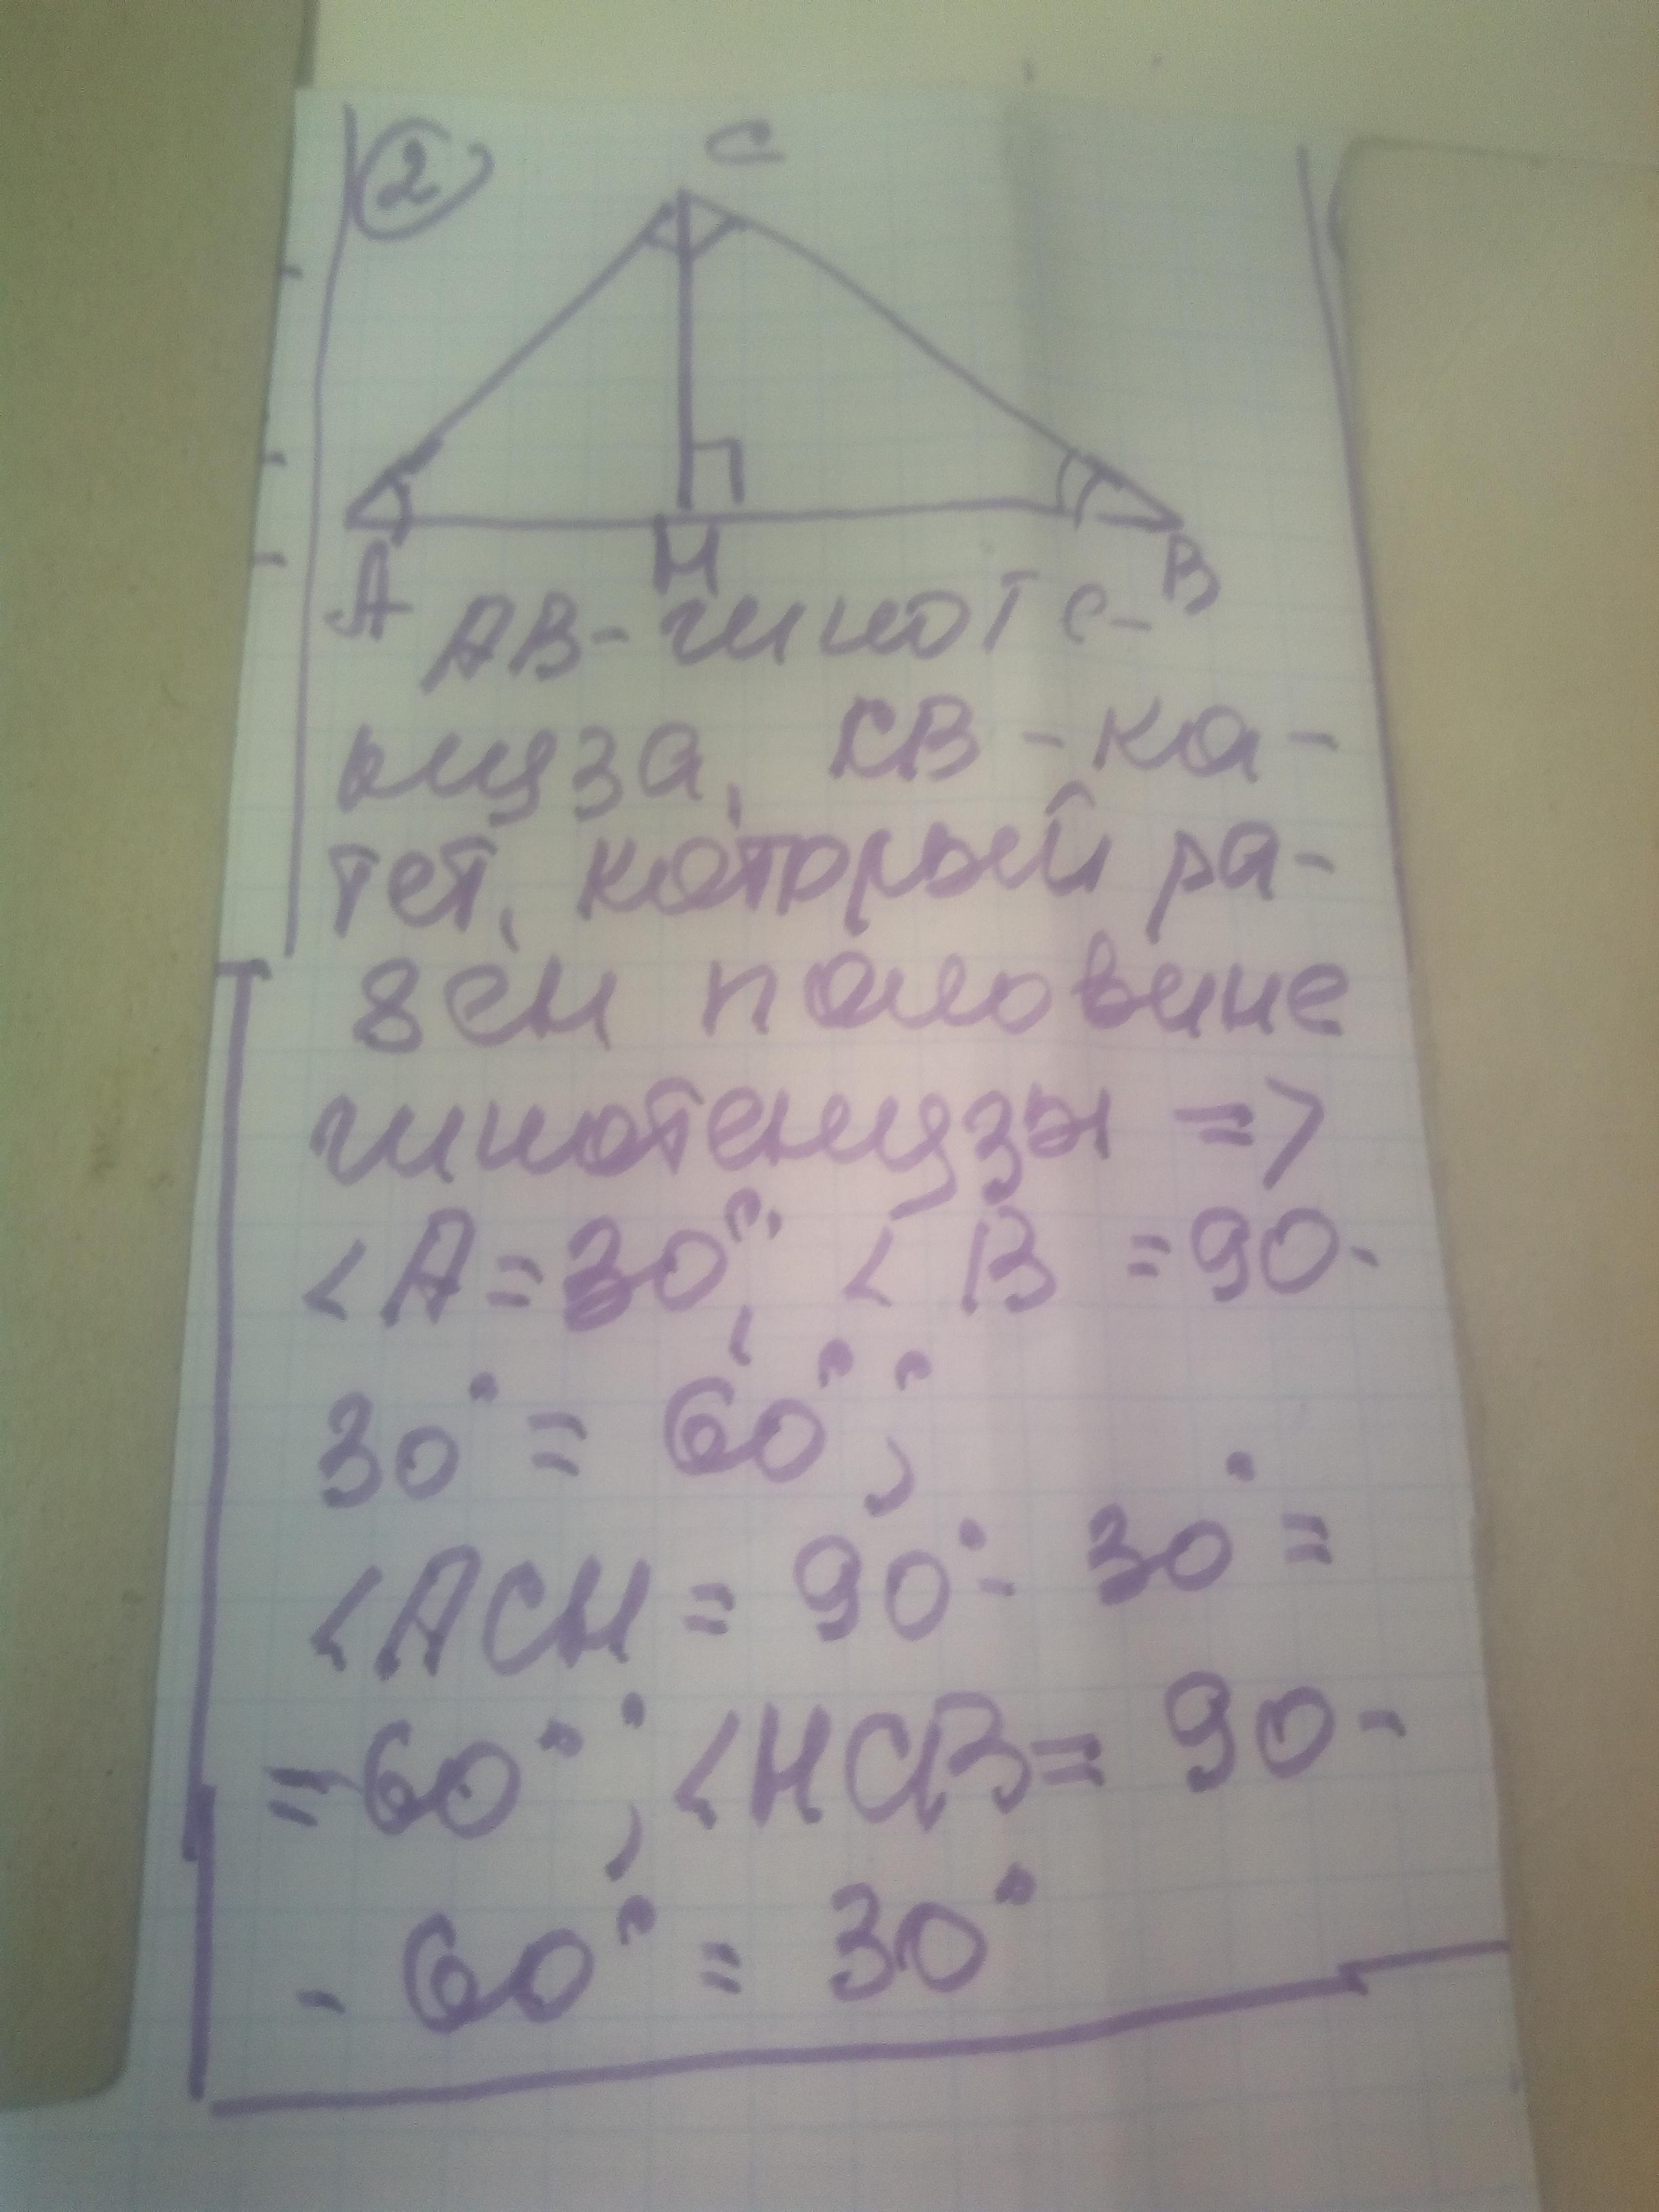 2
C
A
H
B
AB-гипоте-
нуза, CB-ка-
тет, который ра-
вен половине
гипотенузы =>
<A=30°, <B=90-
30°=60°;
<ACH=90°-30°=
=60°; <HCB=90-
-60°=30°